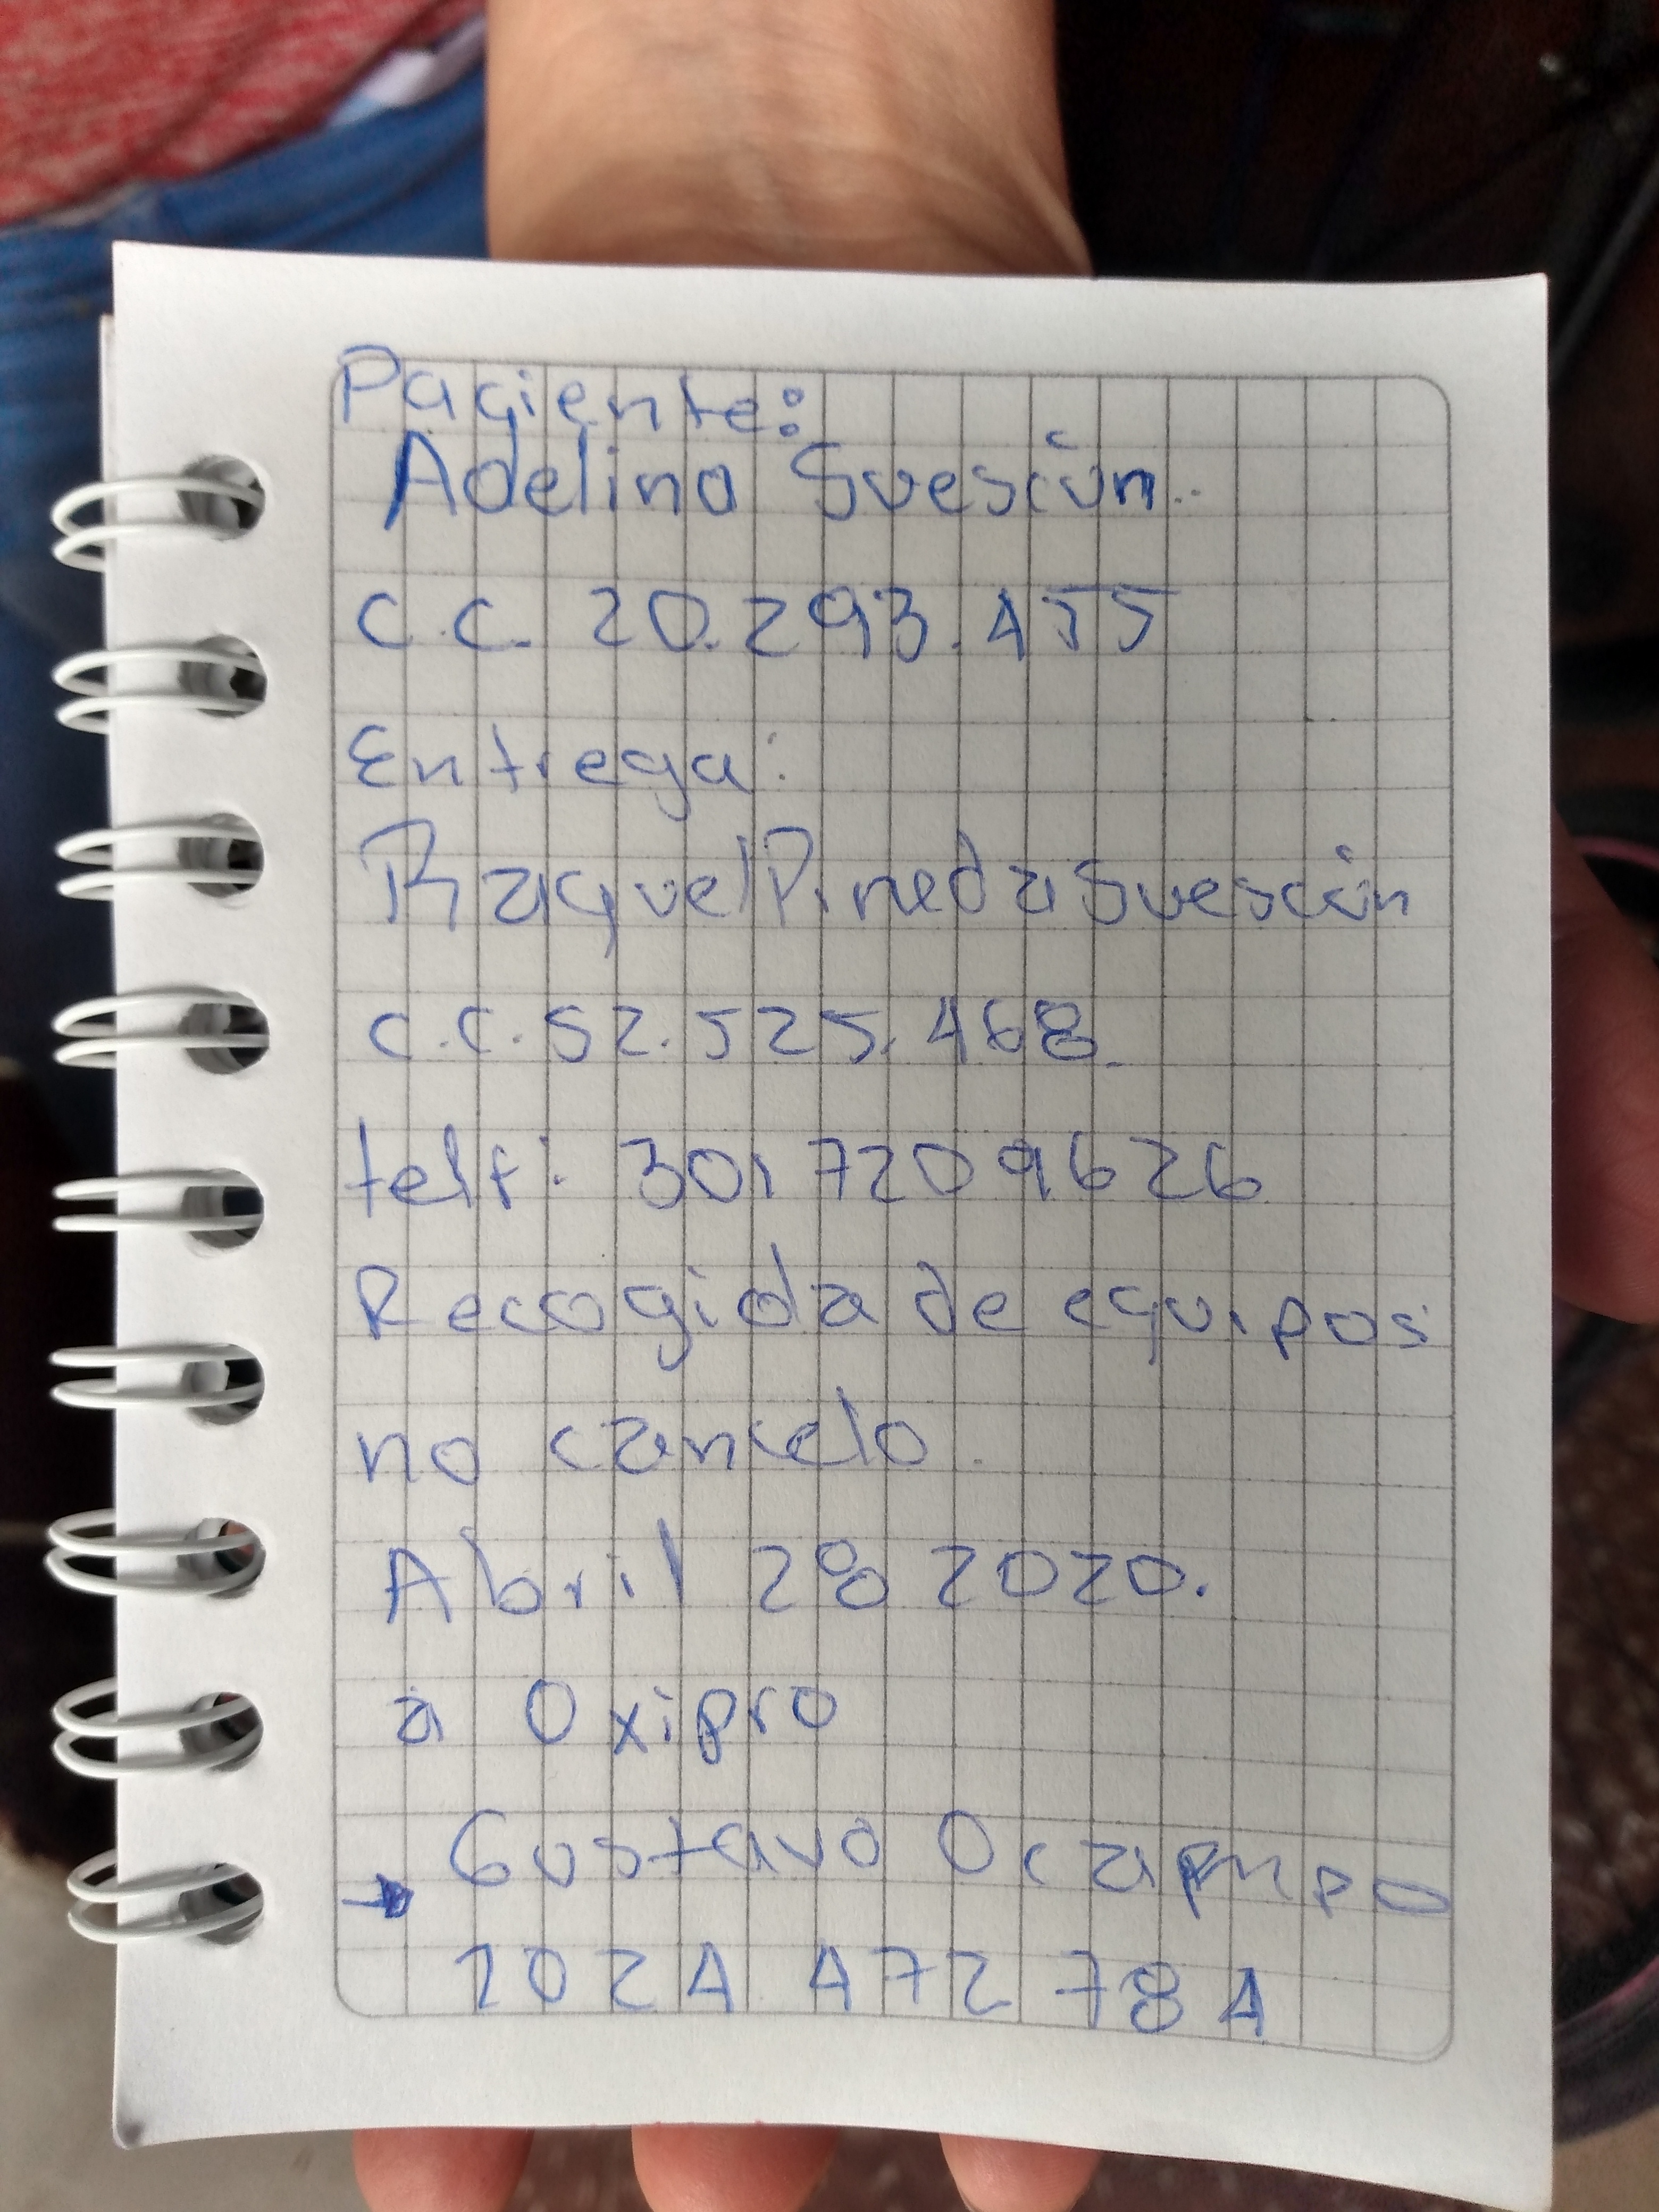 Paciente:
Adelina Suescún..
C.C. 20.293.455
Entrega:
Raquel Pineda Suescún
C.C. 52.525.468.
telf: 3017209626
Recogida de equipos
no cancelo.
Abril 28 2020.
a Oxipro
→ Gustavo Ocampo
1024 472 784